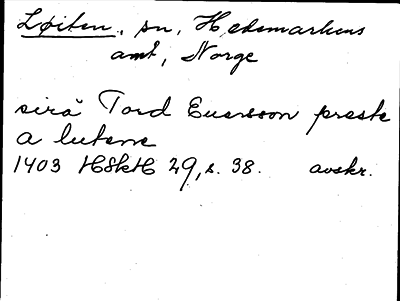 Løiten, sn, Hedemarkens
amt, Norge
sirä Tord Euarsson prestr
a lutene
1403 HSkH 29, s. 38. avskr.